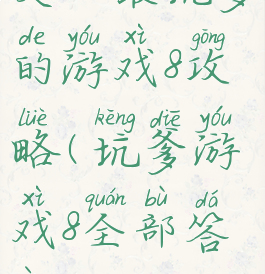 de yóu xì gōng
的游戏8攻
lüè kēng diē yóu
略(坑爹游
xì quán bù dá
戏8全部答